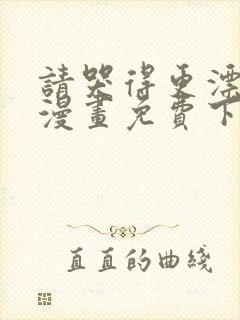 請哭得更漂
漫畫免費下
直直的曲綫